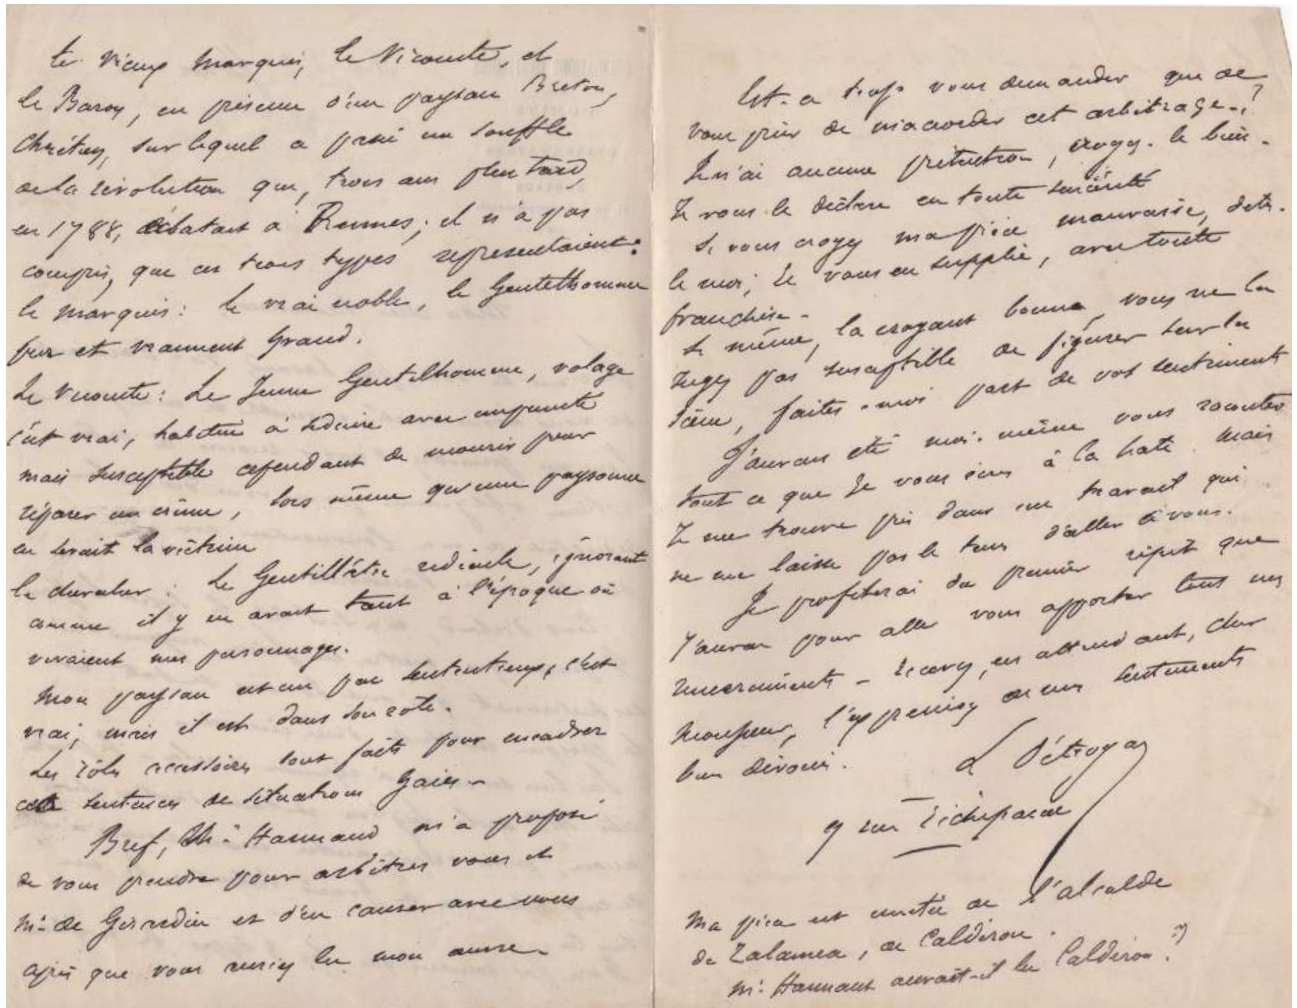 le vieux Marquis, le Vicomte, et
le Baron, en présence d'un paysan Breton,
Chrétien, sur lequel a passé un souffle
de la révolution qui, trois ans plus tard,
en 1788, éclatait à Rennes; il n'a pas
compris, que ces trois types représentaient:
le marquis: le vrai noble, le Gentilhomme
pur et vraiment grand.
Le Vicomte: Le Jeune Gentilhomme, volage
c'est vrai, habitué à séduire avec impunité
mais susceptible cependant de mourir pour
réparer un crime, lors même qu'une paysanne
en serait la victime
le chevalier: Le Gentillâtre ridicule, ignorant
comme il y en avait tant à l'époque où
vivaient mes personnages.
Mon paysan est un peu sententieux, c'est
vrai, mais il est dans son rôle.
Les rôles accessoires sont faits pour encadrer
ces sentences de situations Gaies.-
Bref, Mr. Hannaud m'a proposé
de vous prendre pour arbitres vous et
Mr. de Girardin et d'en causer avec vous
après que vous auriez lu mon œuvre.
Est-ce trop vous demander que de
vous prier de m'accorder cet arbitrage.?
Je n'ai aucune prétention, croyez-le bien.
Je vous le déclare en toute sincérité
Si vous croyez ma pièce mauvaise, dites-
le moi, Je vous en supplie, avec toute
franchise.-
Si même, la croyant bonne, vous ne la
Jugez pas susceptible de figurer sur la
scène, faites-moi part de vos sentiments
J'aurais été moi-même vous raconter
tout ce que Je vous écris à la hate. Mais
Je me trouve pris dans un travail qui
ne me laisse pas le tems d'aller à vous.
Je profiterai du premier répit que
J'aurai pour aller vous apporter tous mes
remerciments - Recevez, en attendant, cher
Monsieur, l'expression de mes sentiments
bien dévoués.
9 rue
Ma pièce est imitée de l'alcalde
de Zalamea, de Calderon.
Mr. Hannaud aurait-il lu Calderon?